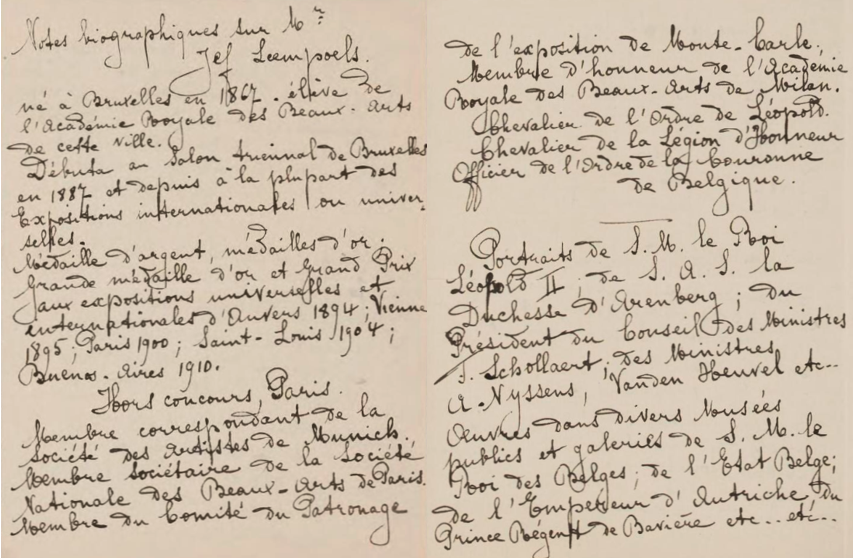 Notes biographiques sur Mr
Jef Leempoels.
né à Bruxelles en 1867. élève de
l'Académie Royale des Beaux-Arts
de cette ville.
Débuta au Salon triennal de Bruxelles
en 1887 et depuis à la plupart des
Expositions internationales ou univer-
selles.
Médaille d'argent, médailles d'or;
Grande médaille d'or et Grand Prix
aux expositions universelles et
internationales d'Anvers 1894; Vienne
1895; Paris 1900; Saint-Louis 1904;
Buenos-Aires 1910.
Hors concours, Paris.
Membre correspondant de la
Société des Artistes de Munich.
Membre sociétaire de la Société
Nationale des Beaux-Arts de Paris.
Membre du Comité du Patronage
de l'exposition de Monte-Carle,
Membre d'honneur de l'Académie
Royale des Beaux-Arts de Milan.
Chevalier de l'Ordre de Léopold.
Chevalier de la Légion d'Honneur
Officier de l'Ordre de la Couronne
de Belgique.
Portraits de S. M. le Roi
Léopold II; de S. A. S. la
Duchesse d'Arenberg; du
Président du Conseil des Ministres
F. Schollaert; des Ministres
A. Nyssens, Vanden Heuvel etc..
Œuvres dans divers Musées
publics et galeries de S. M. le
Roi des Belges; de l'Etat Belge;
de l'Empereur d'Autriche, du
Prince Régent de Bavière etc.. etc..